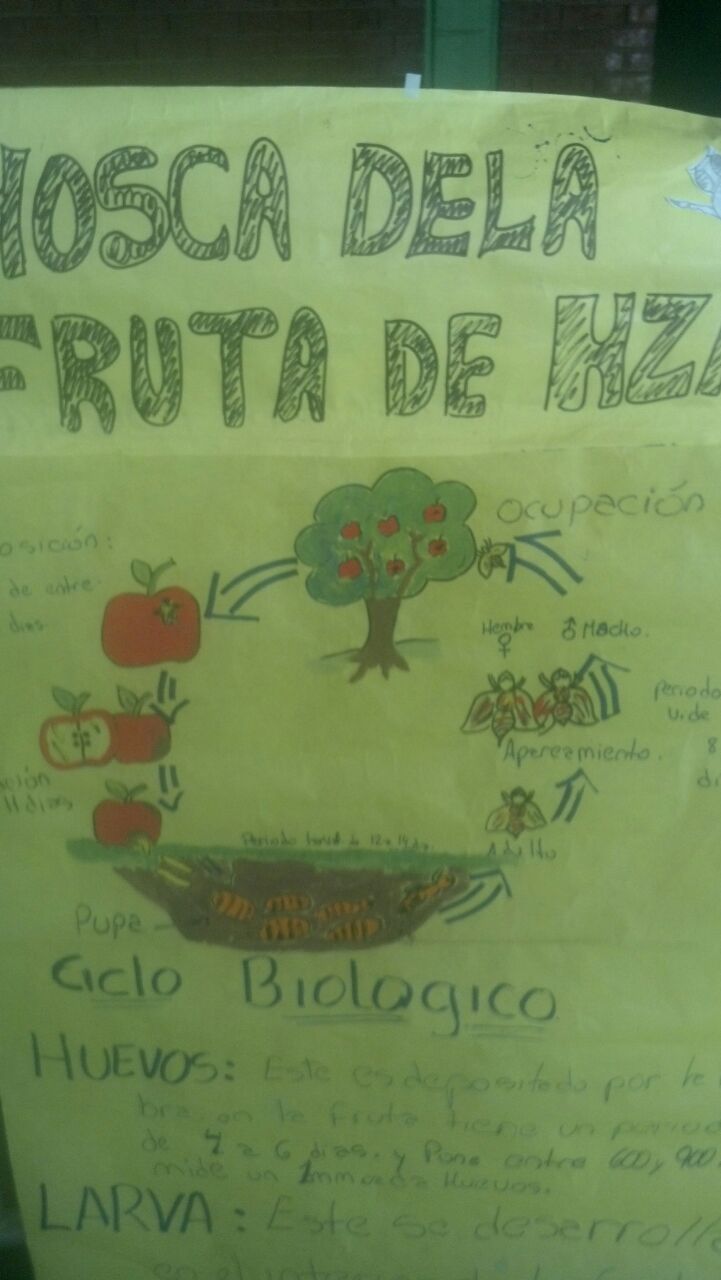 MOSCA DELA
FRUTA DE HZA
OCUPACIÓN
osición:
de entre
dias
Hembra ♀ ♂ Macho.
periodo
Apereamiento.
8
ción
11 dias
Periodo larval de 12 a 14 dias
Adulto
Pupa
Ciclo Biologico
HUEVOS: Este es depositado por le
bra, en la fruta tiene un periodo
de 4 a 6 dias. y Pone entre 600 y 900
mide un 1mm cada Huevos.
LARVA: Este se desarrolla
en el